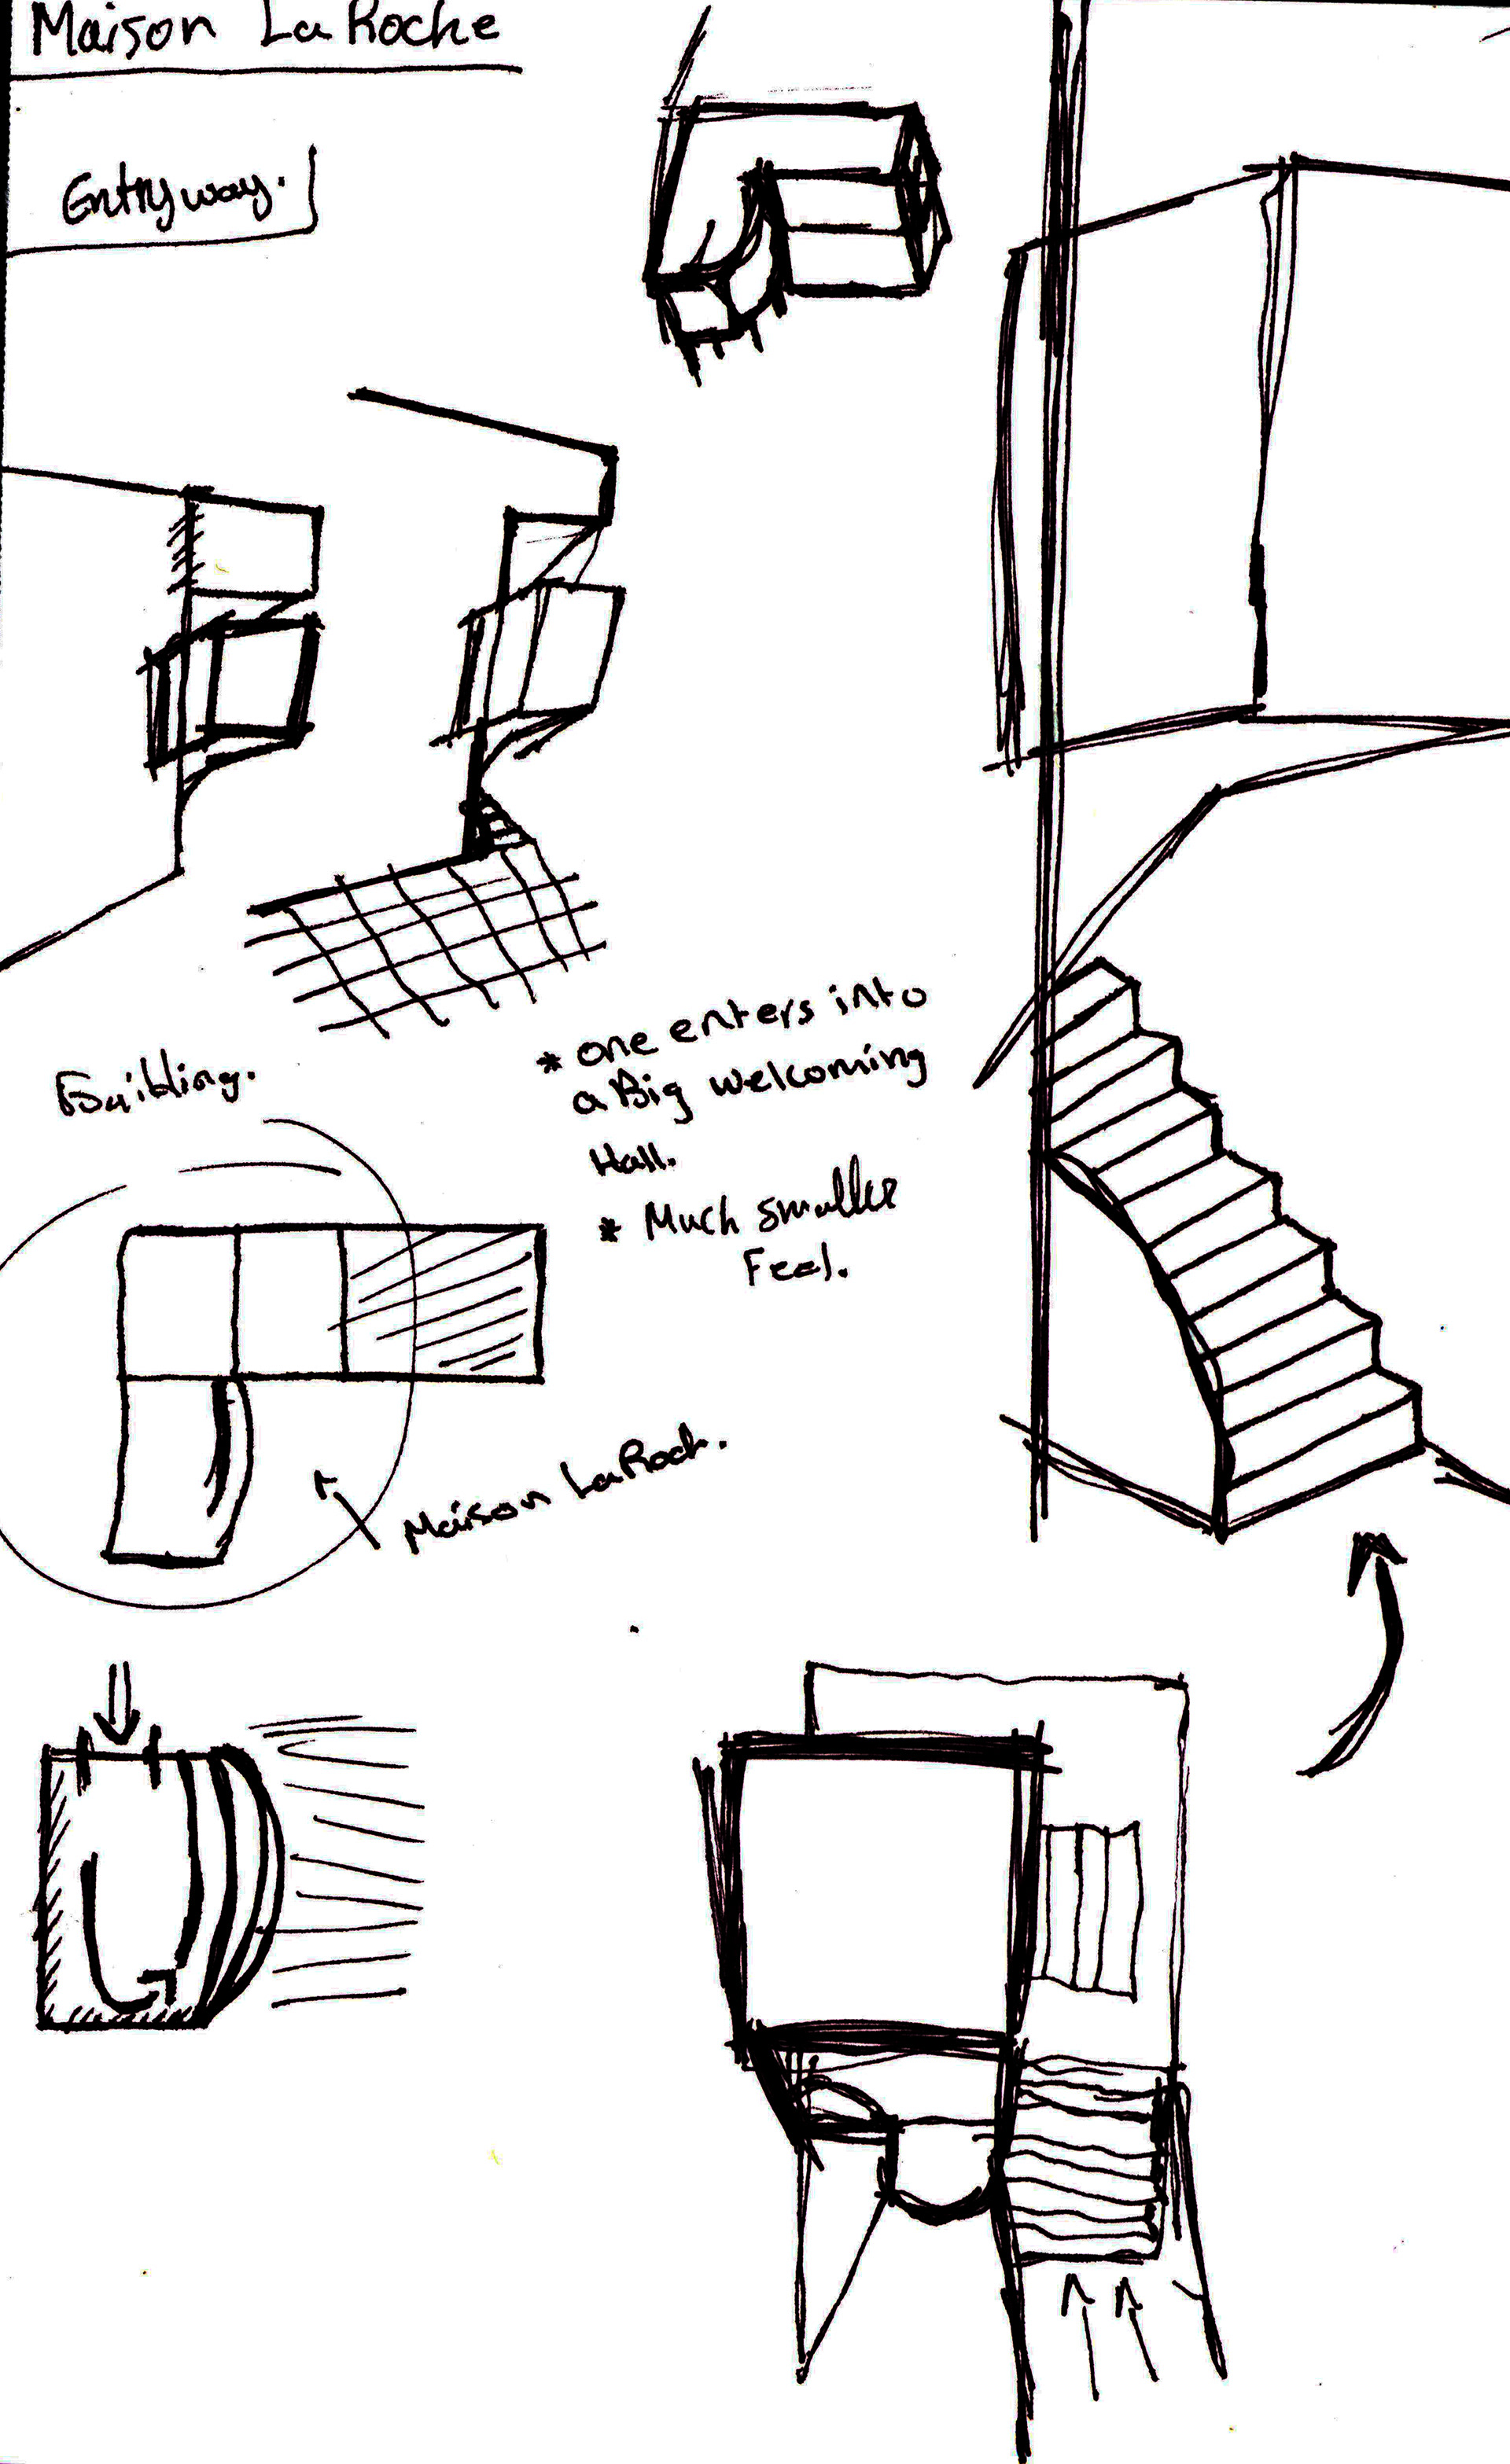 Maison La Roche
Entryway.
* one enters into
a Big welcoming
Hall.
* Much smaller
Feel.
Building.
Maison LaRoch.